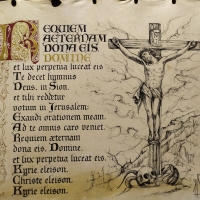 REQUIEM
AETERNAM
DONA EIS
DOMINE
et lux perpetua luceat eis
Te decet hymnus
Deus, in Sion,
et tibi reddetur
votum in Jerusalem:
Exaudi orationem meam,
Ad te omnis caro veniet.
Requiem æternam
dona eis, Domine,
et lux perpetua luceat eis.
Kyrie eleison,
Christe eleison,
Kyrie eleison.